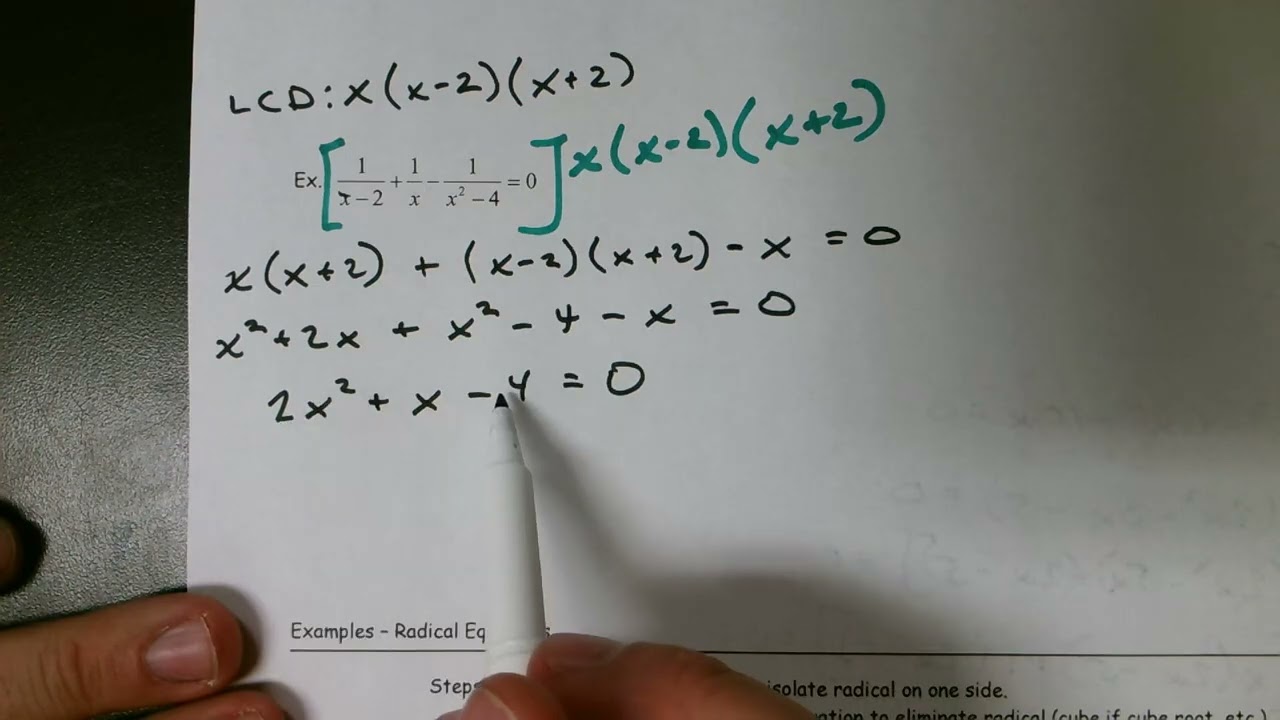 LCD: x(x-2)(x+2)
Ex. [ 1/(x-2) + 1/x - 1/(x²-4) = 0 ] x(x-2)(x+2)
x(x+2) + (x-2)(x+2) - x = 0
x²+2x + x² - 4 - x = 0
2x² + x - 4 = 0
Examples – Radical Eq
Steps
isolate radical on one side.
to eliminate radical (cube if cube root, etc.)